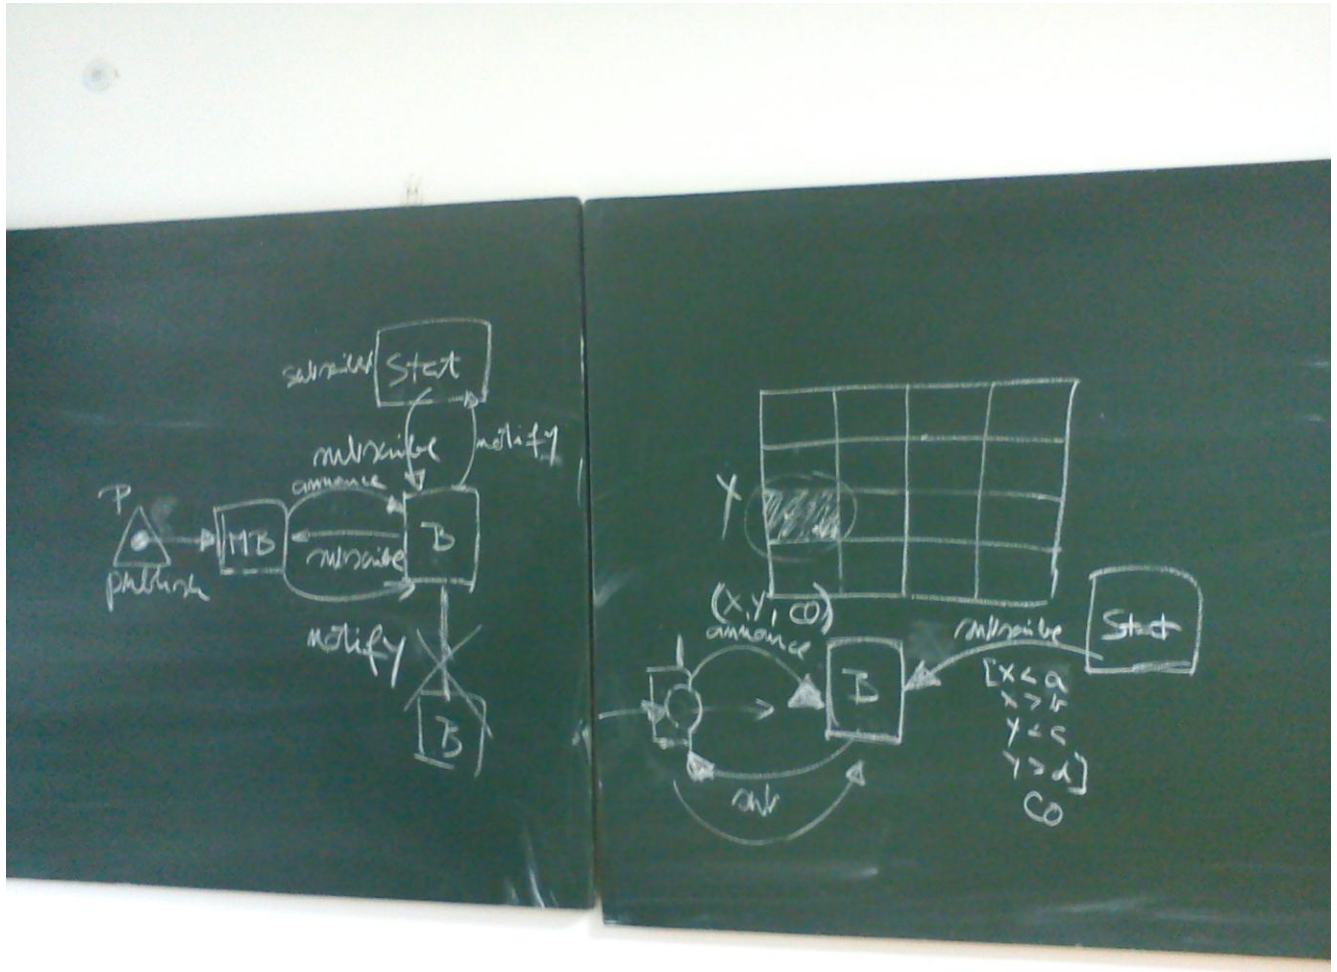 subscriber
Stat
subscribe
notify
announce
P
MB
B
subscribe
publish
notify
B
Y
(X,Y, CO)
announce
subscribe
Stat
B
[X < a
X > b
Y < c
Y > d]
CO
sub